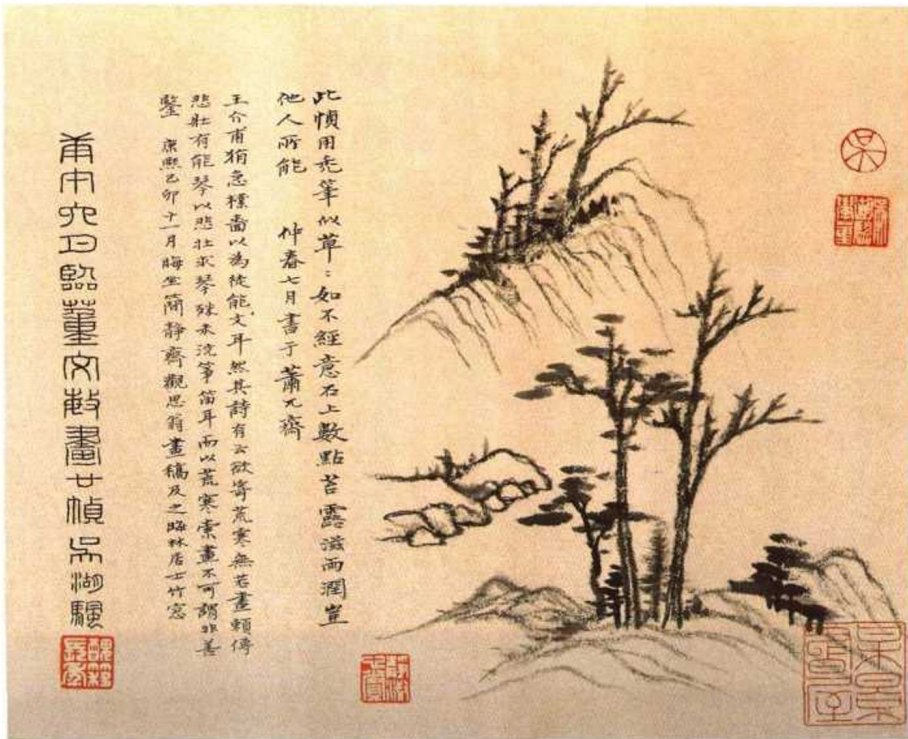 此幀用禿筆似草〻如不經意石上數點苔露滋而潤豈
他人所能 仲春七月書于蕭齋
王介甫狷急樸嗇以為徒能文耳然其詩有云欲寄荒寒無若畫賴傳
悲壯有能琴以悲壯求琴殊未浣箏笛耳而以荒寒索畫不可謂非善
鑒 康熙己卯十一月晦坐簡靜齋觀思翁畫稿及之 林居士竹窓
庚申六月臨董文敏畫廿幀 吳湖颿
吳